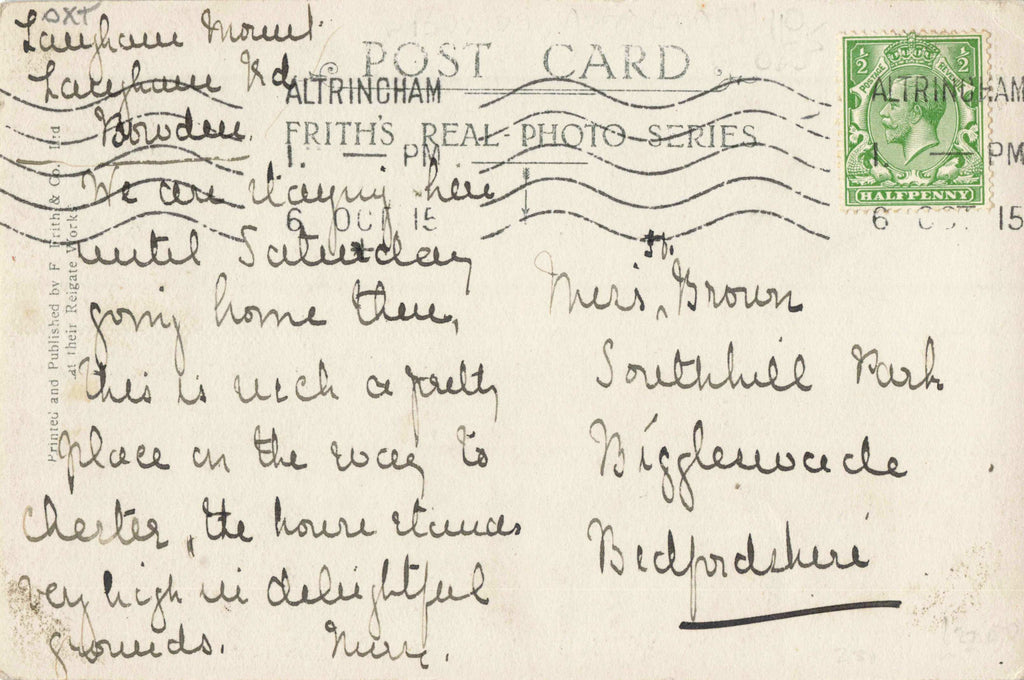 OXT
Langham Mount
Langham Rd
Bowden.
We are staying here
until Saturday
going home then,
this is such a pretty
place on the way to
Chester, the house stands
very high in delightful
grounds.
POST CARD
FRITH'S REAL PHOTO SERIES
ALTRINCHAM
1. — PM
6 OCT 15
Printed and Published by F Frith & Co. Ltd
at their Reigate Work
½ ½
POSTAGE REVENUE
HALFPENNY
ALTRINCHAM
1. — PM
6 OCT 15
Brown
Southhill Park
Biggleswade
Bedfordshire